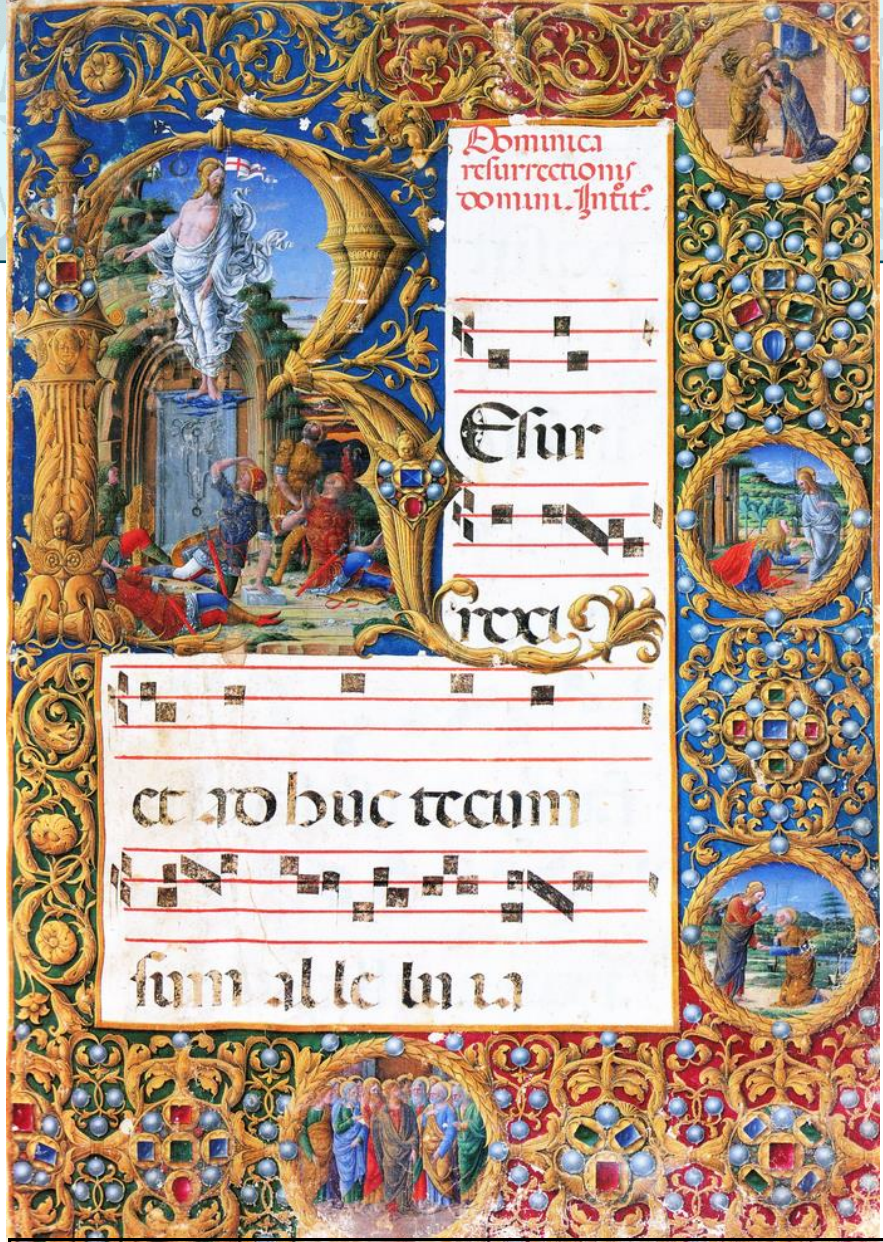 Dominica
resurrectionis
domini. Introit.
REsur
rexi
et ad huc tecum
sum al le lu ia